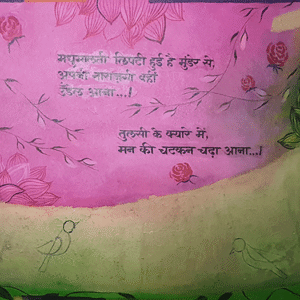 मधुमालती लिपटी हुई है मुंडेर से,
अपनी नाराज़गी वहीं
उंडेल आना...!
तुलसी के क्यारे में,
मन की चटकन चढ़ा आना...!